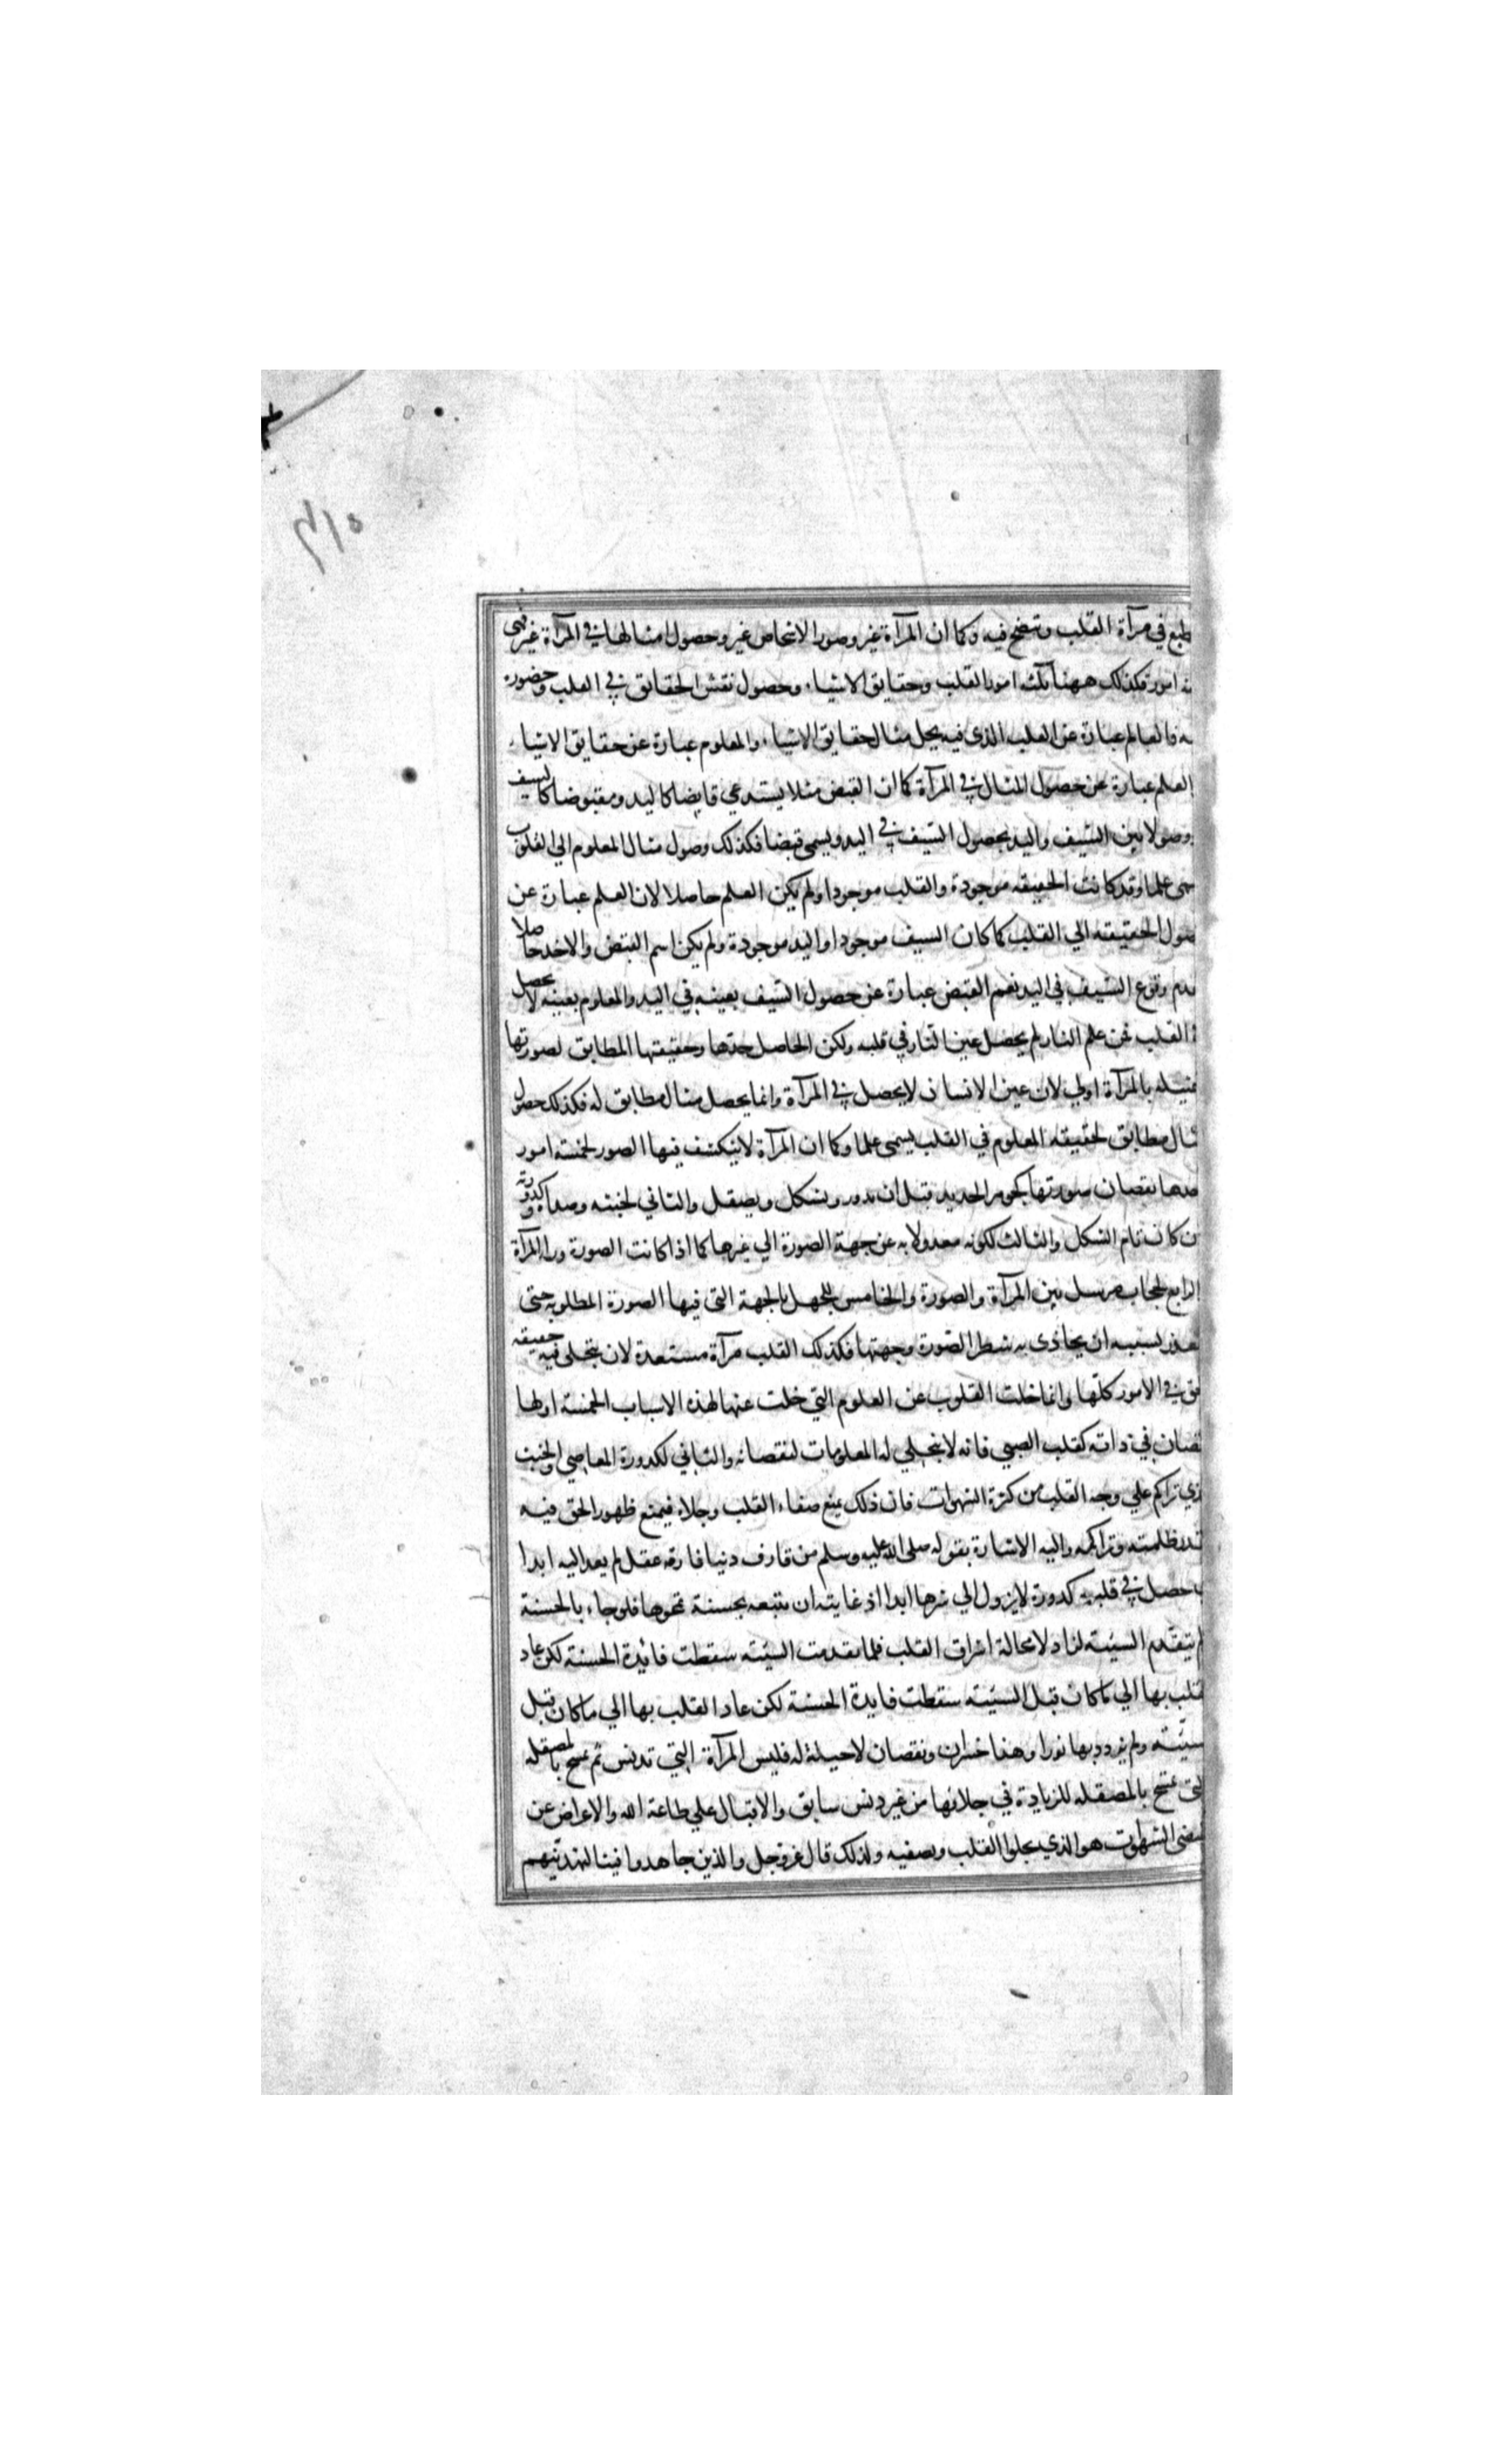 في مرآة القلب وتتضح فيه وكما ان المرآة غير وصور الاشخاص غير وحصول امثالها في المرآة غير فهي
امور فكذلك ههنا ثلثة امور القلب وحقايق الاشياء وحصول نقش الحقايق في القلب وحضوره
فالعالم عبارة عن القلب الذي فيه يحل مثال حقايق الاشياء والمعلوم عبارة عن حقايق الاشياء
العلم عبارة عن حصول المثال في المرآة كما ان القبض مثلا يستدعي قابضا كاليد ومقبوضا كالسيف
وصولا بين السيف واليد بحصول السيف في اليد ويسمى قبضا فكذلك وصول مثال المعلوم الي القلب
علما وقد كانت الحقيقه موجودة والقلب موجودا ولم يكن العلم حاصلا لان العلم عبارة عن
الحقيقه الي القلب كما كان السيف موجودا واليد موجودة ولم يكن اسم القبض والاخذ حاصلا
وقوع السيف في اليد نعم القبض عبارة عن حصول السيف بعينه في اليد والمعلوم بعينه لا يحصل
القلب فمن علم النار لم يحصل عين النار في قلبه ولكن الحاصل حدها وحقيقتها المطابق لصورتها
بالمرآة اولي لان عين الانسان لا يحصل في المرآة وانما يحصل مثال مطابق له فكذلك حصول
مطابق لحقيقه المعلوم في القلب يسمى علما وكما ان المرآة لا ينكشف فيها الصور لخمسة امور
نقصان صورتها كجوهر الحديد قبل ان يدور ويشكل ويصقل والثاني لخبثه وصداه وكدورته
كان تام الشكل والثالث لكونه معدولا به عن جهة الصورة الي غيرها كما اذا كانت الصورة وراء المرآة
الرابع لحجاب مرسل بين المرآة والصورة والخامس للجهل بالجهة التي فيها الصورة المطلوبه حتى
بسببه ان يحاذى به شطر الصورة وجهتها فكذلك القلب مرآة مستعدة لان يتجلى فيه حقيقه
في الامور كلها وانما خلت القلوب عن العلوم التي خلت عنها لهذه الاسباب الخمسة اولها
في ذاته كقلب الصبي فانه لا يتجلي له المعلومات لنقصانه والثاني لكدورة المعاصي والخبث
تراكم علي وجه القلب من كثرة الشهوات فان ذلك يمنع صفاء القلب وجلاءه فيمتنع ظهور الحق فيه
ظلمته وتراكمه واليه الاشارة بقوله صلى الله عليه وسلم من قارف دنيا فارقه عقل لم يعد اليه ابدا
حصل في قلبه كدورة لا يزول الي اثرها ابدا اذ غايته ان يتبعه بحسنة تمحوها فلو جاء بالحسنة
يتقدم السيئة لزاد لا محالة اشراق القلب فلما تقدمت السيئة سقطت فائدة الحسنة لكن عاد
بها الي ما كان قبل السيئة سقطت فايدة الحسنة لكن عاد القلب بها الي ما كان قبل
ولم يزدد بها نورا وهذا خسران ونقصان لا حيلة له فليس المرآة التي تدنس ثم تمسح بالمصقله
تمسح بالمصقله للزيادة في جلائها من غير دنس سابق والاقبال علي طاعة الله والاعراض عن
الشهوات هو الذي يجلوا القلب ويصفيه ولذلك قال عز وجل والذين جاهدوا فينا لنهدينهم